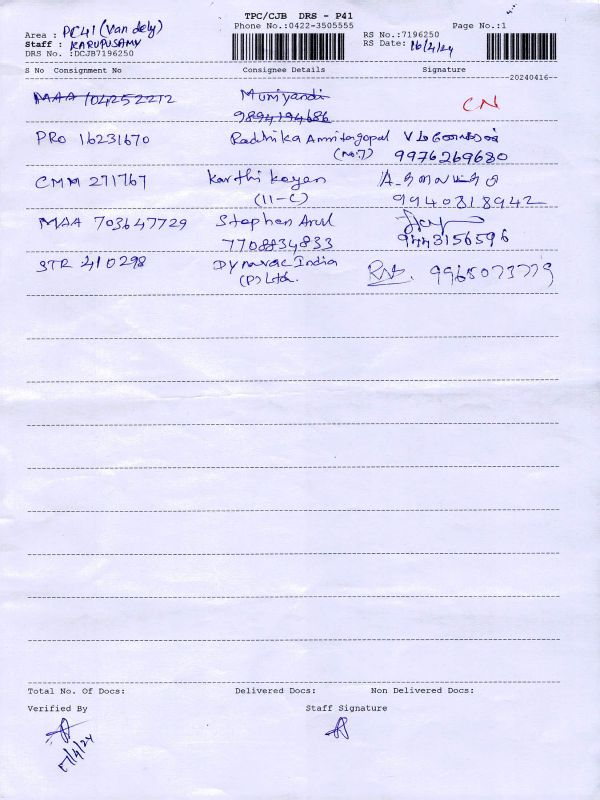 TPC/CJB DRS - P41
Phone No.:0422-3505555
Page No.:1
Area : PC41 (Van dely)
Staff : KARUPUSAMY
DRS No. :DCJB7196250
RS No.:7196250
RS Date: 16/4/24
S No Consignment No Consignee Details Signature
20240416
MAA 104252272 Muniyandi CN
9894194686
PRO 16231670 Radhika Amritagopal
(No:7) 9976269680
CMM 271767 Karthi keyen
(11-C) 9940818942
MAA 703647729 Stephen Arul
7708834833 9443156596
STR 410298 Dynavac India 9965073779
(P) Ltd.
Total No. Of Docs: Delivered Docs: Non Delivered Docs:
Verified By Staff Signature
17/4/24